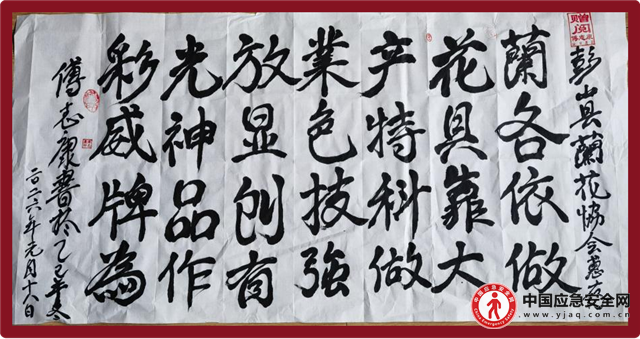 贈阅
彭山县蘭花協会惠存
蘭花产業放光彩
各具特色显神威
依靠科技创品牌
做大做強有作為
傅志康書於乙巳年冬
二〇二六年元月十八日
中国应急安全网
www.yjaq.com.cn